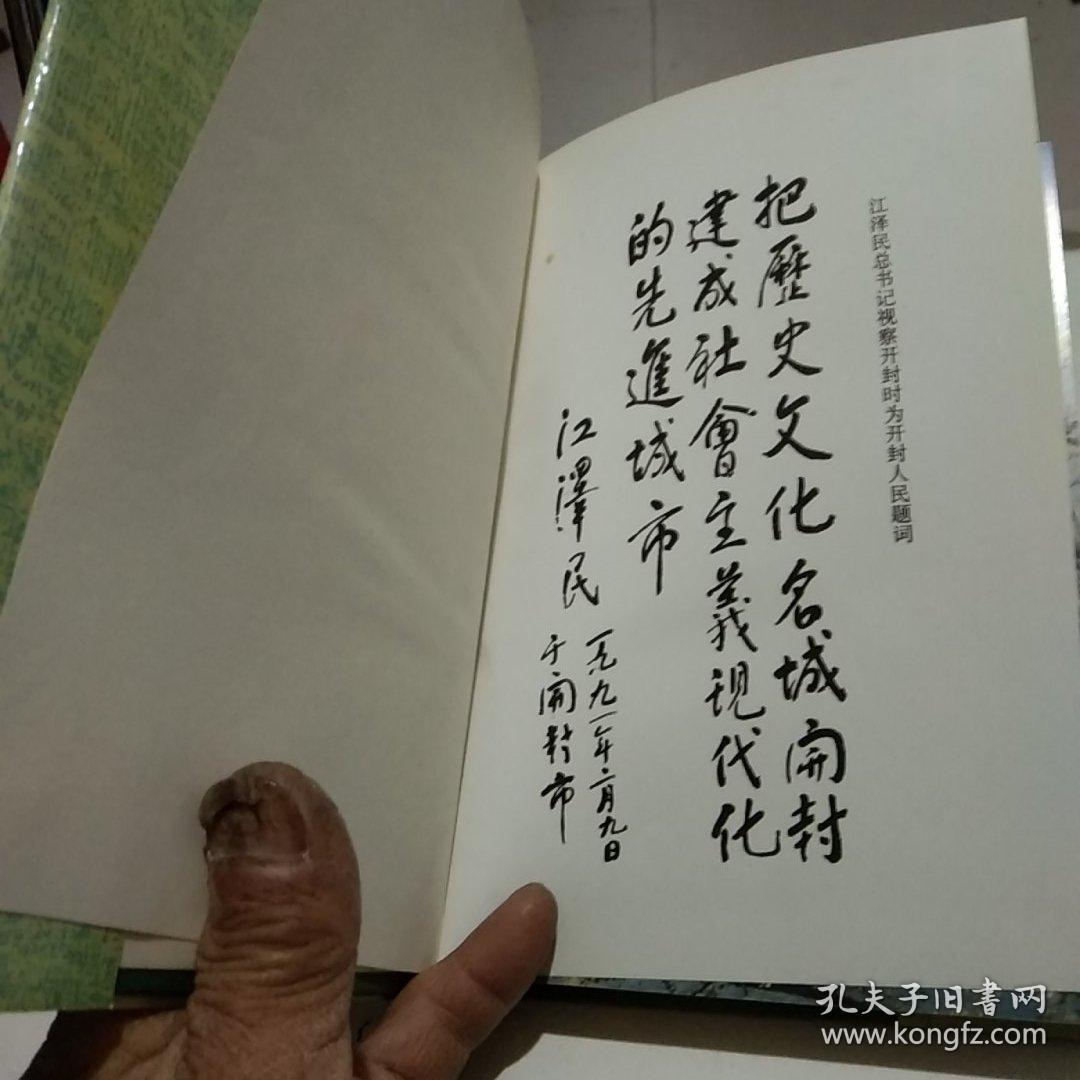 江泽民总书记视察开封时为开封人民题词
把歷史文化名城開封
建成社會主義現代化
的先進城市
江澤民
一九九一年二月九日
于開封市
孔夫子旧書网
www.kongfz.com